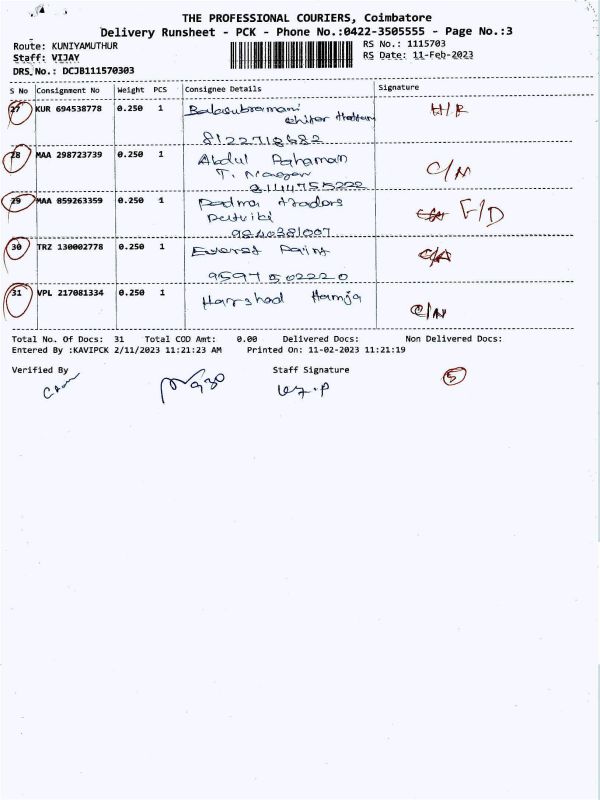 THE PROFESSIONAL COURIERS, Coimbatore
Delivery Runsheet - PCK - Phone No.:0422-3505555 - Page No.:3
Route: KUNIYAMUTHUR RS No.: 1115703
Staff: VIJAY RS Date: 11-Feb-2023
DRS No.: DCJB111570303
S No Consignment No Weight PCS Consignee Details Signature
27 KUR 694538778 0.250 1 Balasubramani H/R
8122718682
28 MAA 298723739 0.250 1 Abdul Rahaman C/N
T. Nagar
29 MAA 859263359 0.250 1 Padma traders F/D
9840381007
30 TRZ 130002778 0.250 1 Everest Paint
9597502220
31 VPL 217081334 0.250 1 Harshad Hamja C/N
Total No. Of Docs: 31 Total COD Amt: 0.00 Delivered Docs: Non Delivered Docs:
Entered By :KAVIPCK 2/11/2023 11:21:23 AM Printed On: 11-02-2023 11:21:19
Verified By Staff Signature
5